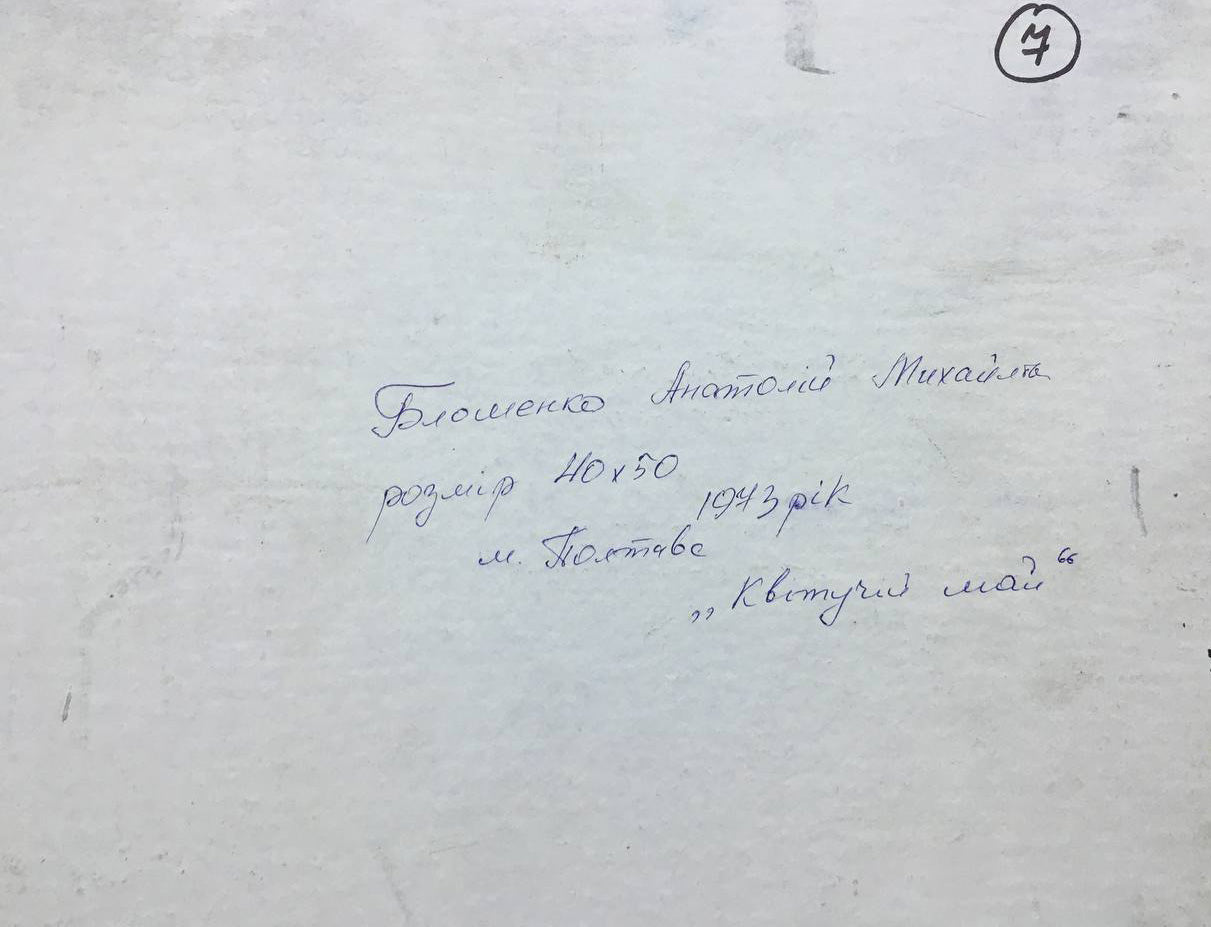 7
Бломенко Анатолій
розмір 40х50
1973 рік
м. Полтава
„Квітучий май“